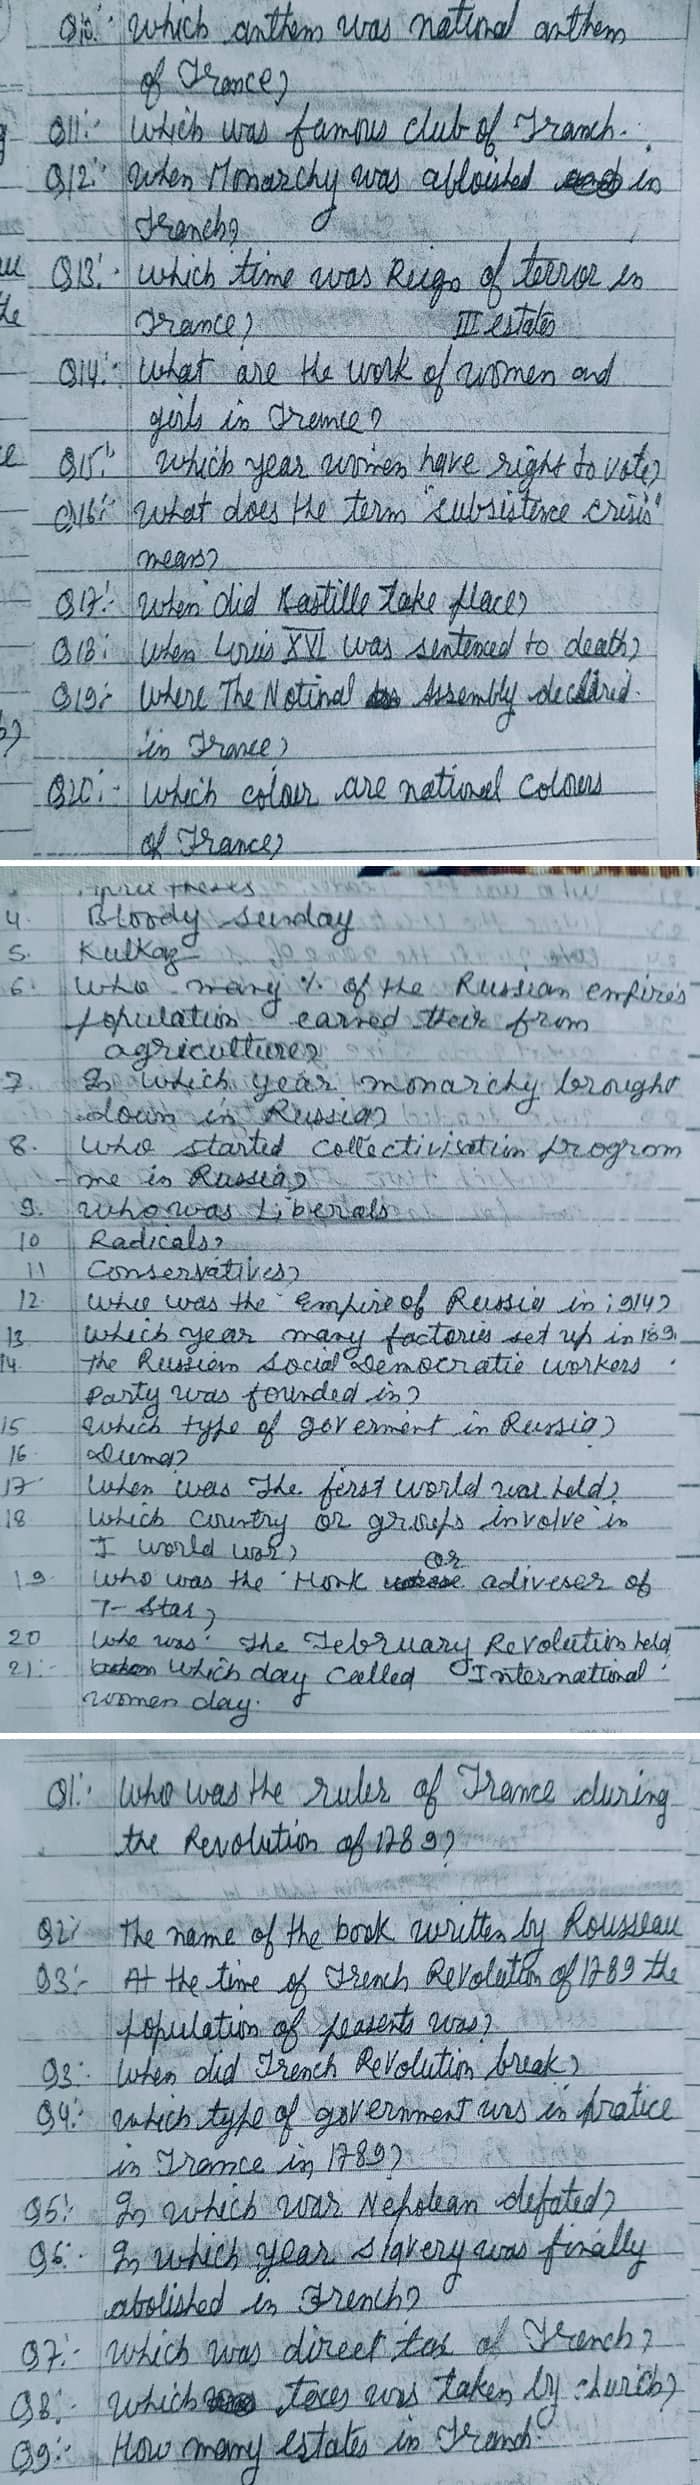 Q10:- Which anthem was national anthem
of France?
Q11:- Which was famous club of Franch.
Q12:- When Monarchy was abloished in
Franch?
Q13:- Which time was Reign of terror in
France?
III estates
Q14:- What are the work of women and
girls in France?
Q15:- Which year women have right to vote?
Q16:- What does the term "subsistence crisis"
means?
Q17:- When did Bastille take place?
Q18:- When Louis XVI was sentenced to death?
Q19:- Where The Notinal Assembly declared.
in France?
Q20:- Which colour are national colours
of France?
theses
4. Bloody sunday
5. Kulkag
6. Who many % of the Russian empires
population earned their from
agriculture?
7. In which year monarchy brought
down in Russia?
8. Who started collectivisation program
me in Russia?
9. Who was Liberals
10 Radicals?
11 Conservatives?
12. Who was the Empire of Russia in 1914?
13 Which year many factories set up in 189
14. The Russian Social Democratic workers
Party was founded in?
15 Which type of goverment in Russia?
16 Duma?
17 When was The first world war held?
18 Which country or groups involve in
I world war?
19 Who was the Monk or adiveser of
T-Star?
20 Who was The February Revolution held
21:- Which day called International
women day.
Q1:- Who was the ruler of France during
the Revolution of 1789?
Q2:- The name of the book written by Rousseau
Q3:- At the time of French Revolution of 1789 the
population of peasents was?
Q3:- When did French Revolution break?
Q4:- Which type of government was in pratice
in France in 1789?
Q5:- In which war Nepolean defated?
Q6:- In which year slavery was finally
abolished in French?
Q7:- Which was direct tax of French?
Q8:- Which taxes was taken by church?
Q9:- How many estates in Franch.